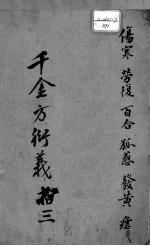 傷寒 勞復 百合 狐惑 發黃
千金方衍義 拾三